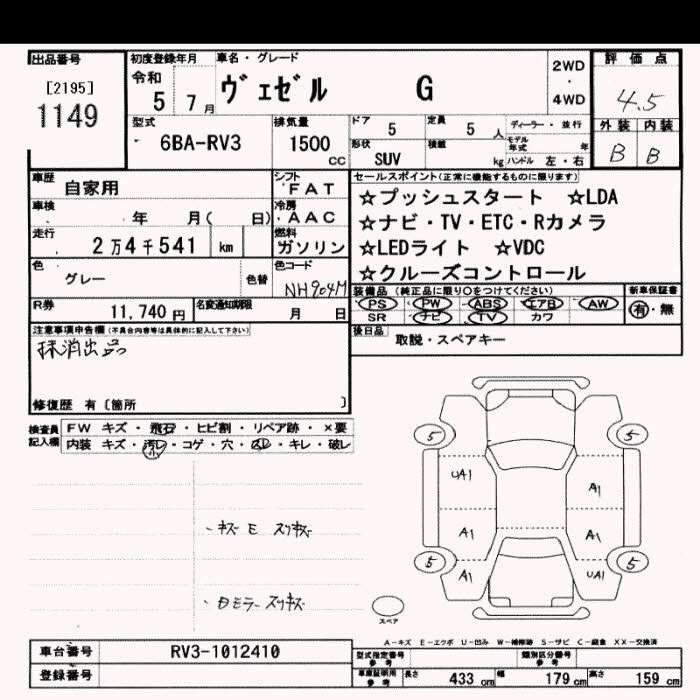 出品番号
[2195]
1149
初度登録年月 車名・グレード
令和 5 7月 ヴェゼル G
2WD
・
4WD
評価点
4.5
外装 内装
B B
型式
6BA-RV3
排気量
1500 cc
ドア 5
定員 5 人
ディーラー・並行
形状 SUV
積載 kg
モデル年式 年
ハンドル 左・右
車歴 自家用
シフト FAT
車検 年 月( 日)
冷房 AAC
走行 2万4千541 km
燃料 ガソリン
色 グレー 色替
色コード NH904M
R券 11,740円
名変通知期限 月 日
セールスポイント(正常に機能するものに限ります)
☆プッシュスタート ☆LDA
☆ナビ・TV・ETC・Rカメラ
☆LEDライト ☆VDC
☆クルーズコントロール
装備品(純正品に限り○をつけてください)
PS PW ABS エアB AW
SR ナビ TV カワ
新車保証書
有・無
後日品 取説・スペアキー
注意事項申告欄(不具合内容等は具体的に記入して下さい)
抹消出品
修復歴 有〔箇所 〕
検査員記入欄
FW キズ・飛石・ヒビ割・リペア跡・×要
内装 キズ・汚レ・コゲ・穴・スレ・キレ・破レ
小
・キズ E スリキズ
・Dミラー スリキズ
5 5
UA1 A1
A1 A1
5 5
A1 UA1
スペア
A-キズ E-エクボ U-凹み W-補修跡 S-サビ C-腐食 XX-交換済
車台番号 RV3-1012410
登録番号
型式指定番号 参考
類別区分番号 参考
車庫証明用 参考 長さ 433 cm 幅 179 cm 高さ 159 cm